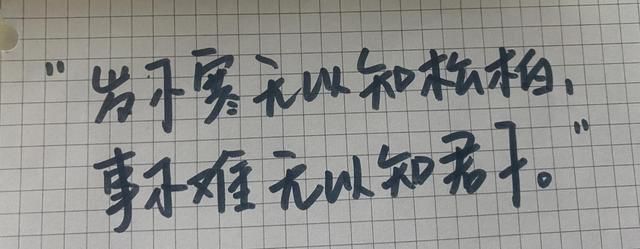 "岁不寒无以知松柏,
事不难无以知君子。"